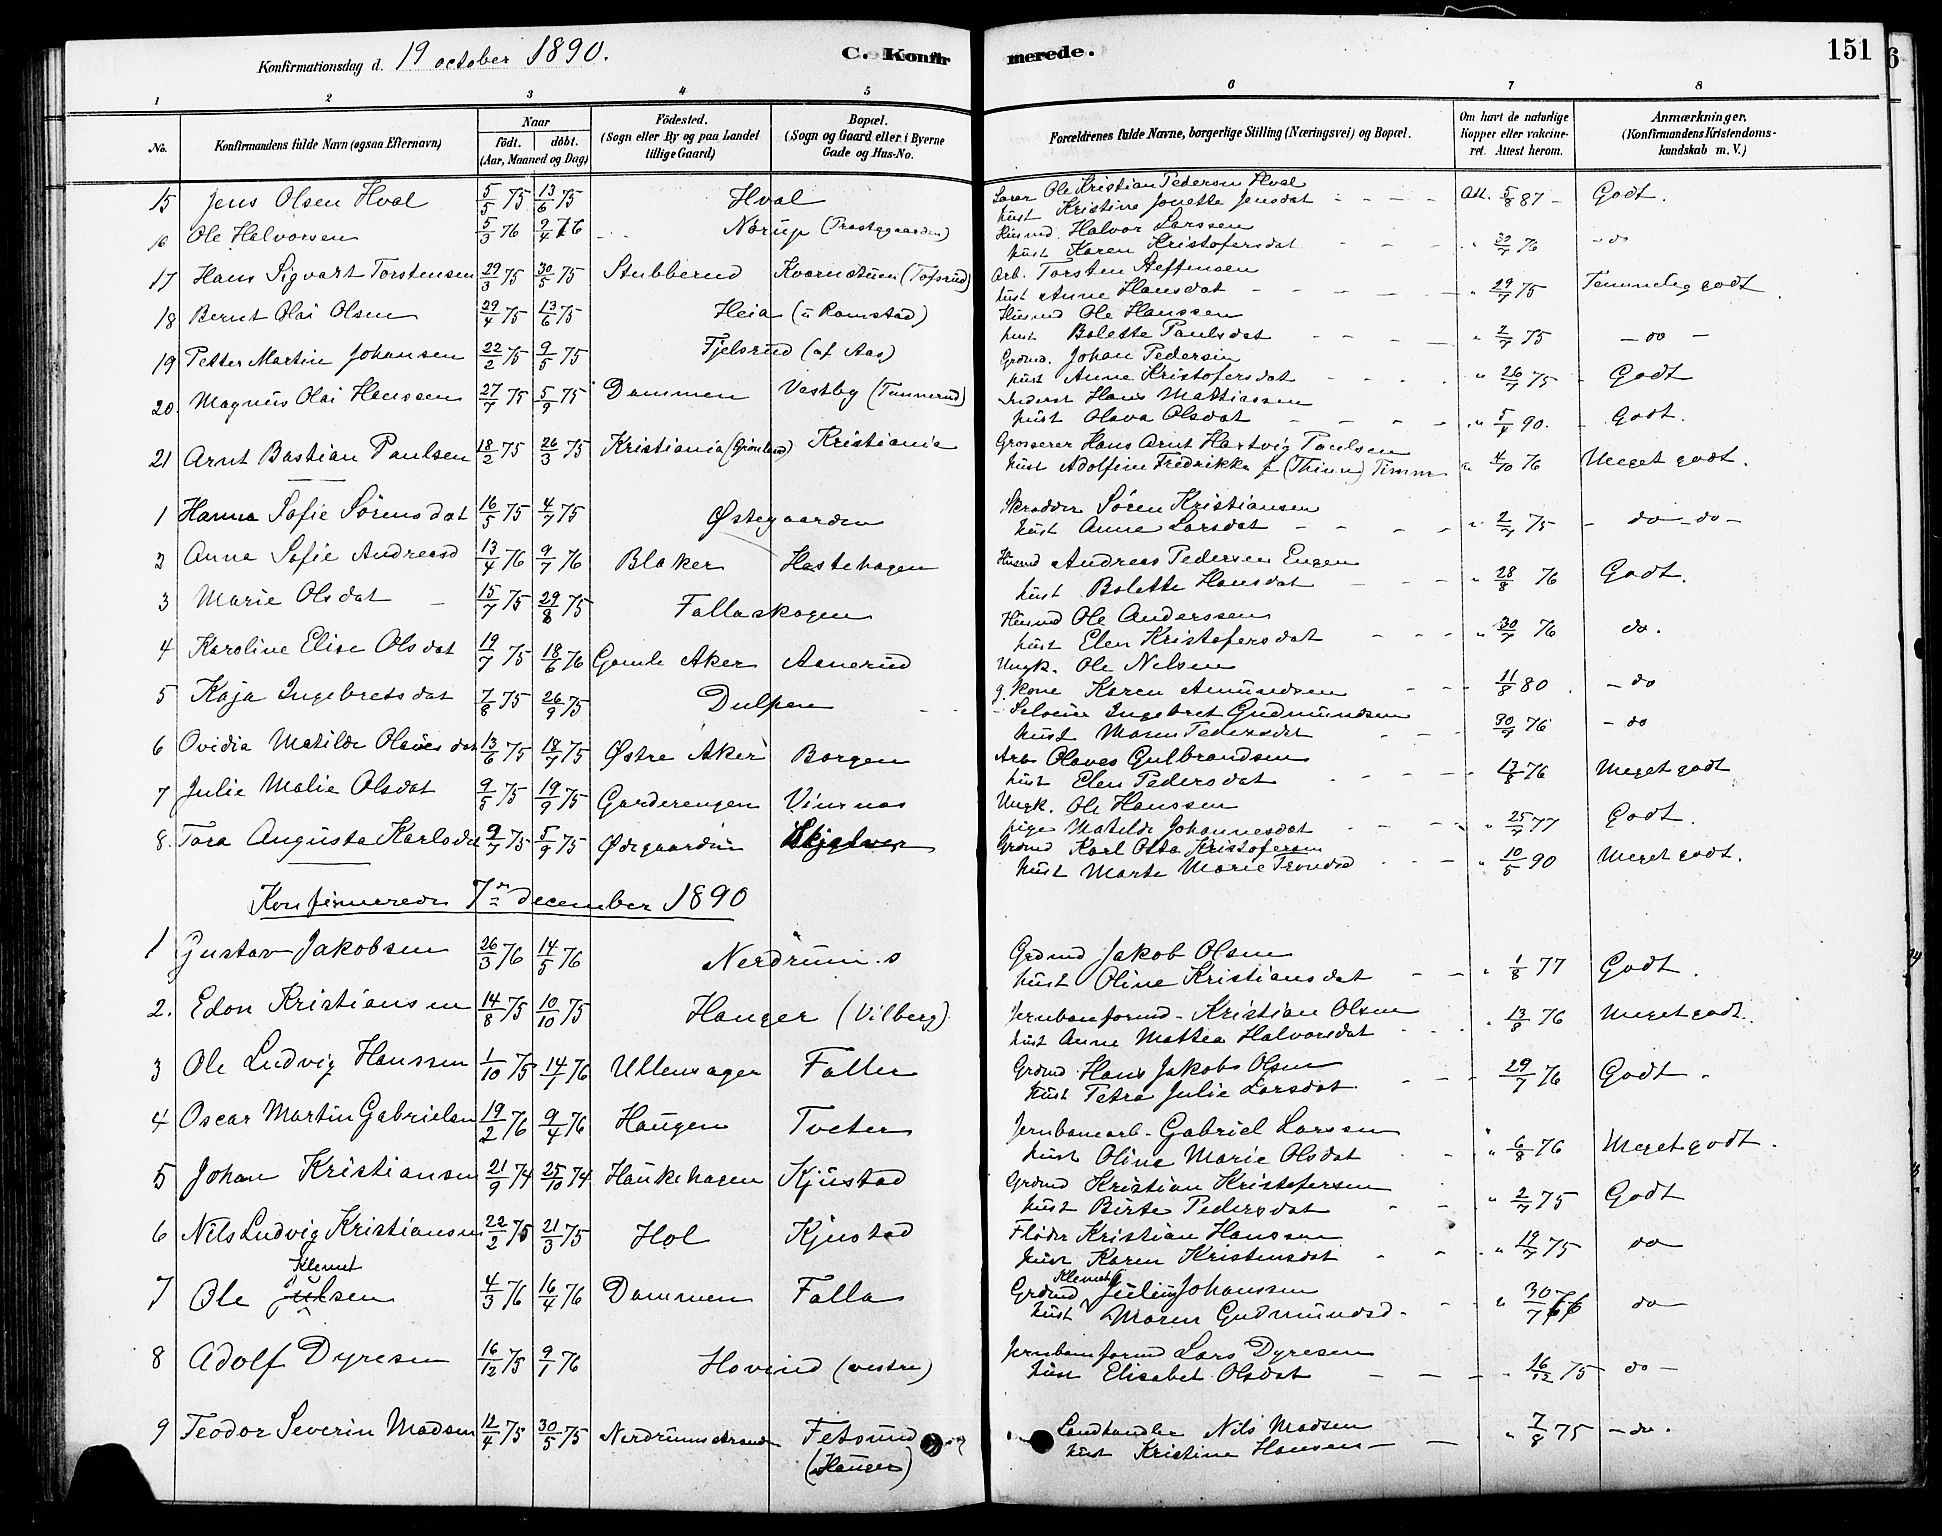 Konfirmationsdag d. 19 october 1890. C. Konfir merede. 151
1 2 3 4 5 6 7 8
No. Konfirmandens fulde Navn (ogsaa Efternavn) Naar født. døbt. (Aar, Maaned og Dag) Fødested. (Sogn eller By og paa Landet tillige Gaard) Bopæl. (Sogn og Gaard eller i Byerne Gade og Hus-No. Forældrenes fulde Navne, borgerlige Stilling (Næringsvei) og Bopæl. Om havt de naturlige Kopper eller vakcineret. Attest herom. Anmærkninger. (Konfirmandens Kristendomskundskab m. V.)
15 Jens Olsen Hval 5/5 75 13/6 75 Hval Ole Kristian Pedersen Hval
hust Kristine Jonette Jensdat - - - Att. 5/8 87 - Godt.
16 Ole Halvorsen 5/3 76 9/4 76 Nørup (Prestegaarden) Husmd. Halvor Larssen
hust Karen Kristofersdat - - - " 30/7 76 - do
17 Hans Sigvart Torstensen 29/3 75 30/5 75 Stubberud Kvernstuen (Tofsrud) Arb. Torsten Steffensen
hust Anne Hansdat - - - " 29/7 75 Temmelig godt.
18 Bernt Olai Olsen 29/4 75 13/6 75 Heia (u Ramstad) Husmd Ole Hanssen
hust Bolette Paulsdat - - - " 2/7 75 - do -
19 Petter Martin Johansen 22/2 75 9/5 75 Fjelsrud (af Aas) Grdmd. Johan Pedersen
hust Anne Kristofersdat - - - " 26/7 75 - Godt
20. Magnus Olai Hanssen 27/7 75 5/9 75 Dammen Vestby (Tannerud) Inderst Hans Mathiassen
hust Olava Olsdat - - - " 5/4 90. - Godt.
21 Arnt Bastian Paulsen 18/2 75 26/3 75 Kristiania (Grønland) Kristiania Grosserer Hans Arnt Hartvig Paulsen
hust Adolfine Fredrikke f (Thinn) Timm " 4/10 76 Meget godt.
1 Hanna Sofie Sørensdat 16/5 75 4/7 75 Østegaarden Skrædder Søren Kristiansen
hust Anne Larsdat - - - " 2/7 75 - do - do -
2 Anna Sofie Andreasd 13/4 76 9/7 76 Blaker Hestehagen Husmd Andreas Pedersen Engen
hust Bolette Hansdat - - - " 28/8 76 Godt.
3 Marie Olsdat - 15/7 75 29/8 75 Fallaskogen Husmd Ole Anderssen
hust Elen Kristofersdat - - - " 30/7 76 do.
4 Karoline Elise Olsdat 19/7 75 18/6 76 Gamle Aker Aanerud Ungk. Ole Nilsen
g. kone Karen Amundsen - - - 11/8 80 - do
5 Kaja Ingebretsdat 7/8 75 26/9 75 Dulpen Selveier Ingebret Gudmundsen
hust Maren Pedersdat - - 30/7 76 - do
6 Ovidia Matilde Olavesdat 13/6 75 18/7 75 Østre Aker Borgen Arb Olaves Gulbrandsen
hust Elen Pedersdat - - - 13/8 76 Meget godt
7 Julie Malie Olsdat 9/5 75 19/9 75 Garderengen Vinsnes Ungk. Ole Hanssen
pige Matilde Johannesdat - - - " 25/7 77 Godt.
8. Tora Augusta Karlsdat 9/7 75 5/9 75 Ødegaarden Skjelver Grdmd Karl Otto Kristofersen
hust Marte Marie Trondsd - - - " 10/5 90 Meget godt.
Konfirmerede 7de december 1890
1 Gustav Jakobsen 26/3 76 14/5 76 Nerdrum. s Grdmd Jakob Olsen
hust Oline Kristiansdat - - " 1/8 77 Godt.
2. Edon Kristiansen 14/8 75 10/10 75 Hanger (Vilberg). Jernbaneformd - Kristian Olsen
hust Anne Mathea Halvorsdat - - - " 13/8 76 Meget godt.
3 Ole Ludvig Hanssen 1/10 75 14/1 76 Ullensager Faller Grdmd Hans Jakob Olsen
hust Petra Julie Larsdat - - - 29/7 76 Godt.
4 Oscar Martin Gabrielsen 19/2 76 9/4 76 Haugen Tveter Jernbanearb - Gabriel Larssen
hust Oline Marie Olsdat - - " 6/8 76 Meget godt.
5 Johan Kristiansen 21/9 74 25/10 74 Haukehagen Kjustad Grdmd Kristian Kristofersen
hust Birte Pedersdat - - " 2/7 75 Godt
6 Nils Ludvig Kristiansen 22/2 75 21/3 75 Hol Kjustad Fløder Kristian Hanssen
hust Karen Kristensdat - - " 19/7 75 do
Klemet Klemet
7 Ole Julsen 4/3 76 16/4 76 Dammen Falla Grdmd Julius Johanssen
hust Maren Gudmundsd - - " 30/7 76 do
8 Adolf Dyresen 16/12 75 9/1 76 Hovind (vestre) Jernbaneformd Lars Dyresen
hust Elisabet Olsdat - - - " 16/12 75 do -
9 Teodor Severin Madsen 12/4 75 30/5 75 Nerdrumsstranden Fetsund
(Hanger) Landhandler Nils Madsen
hust Kristine Hansen - - " 7/8 75 - do.